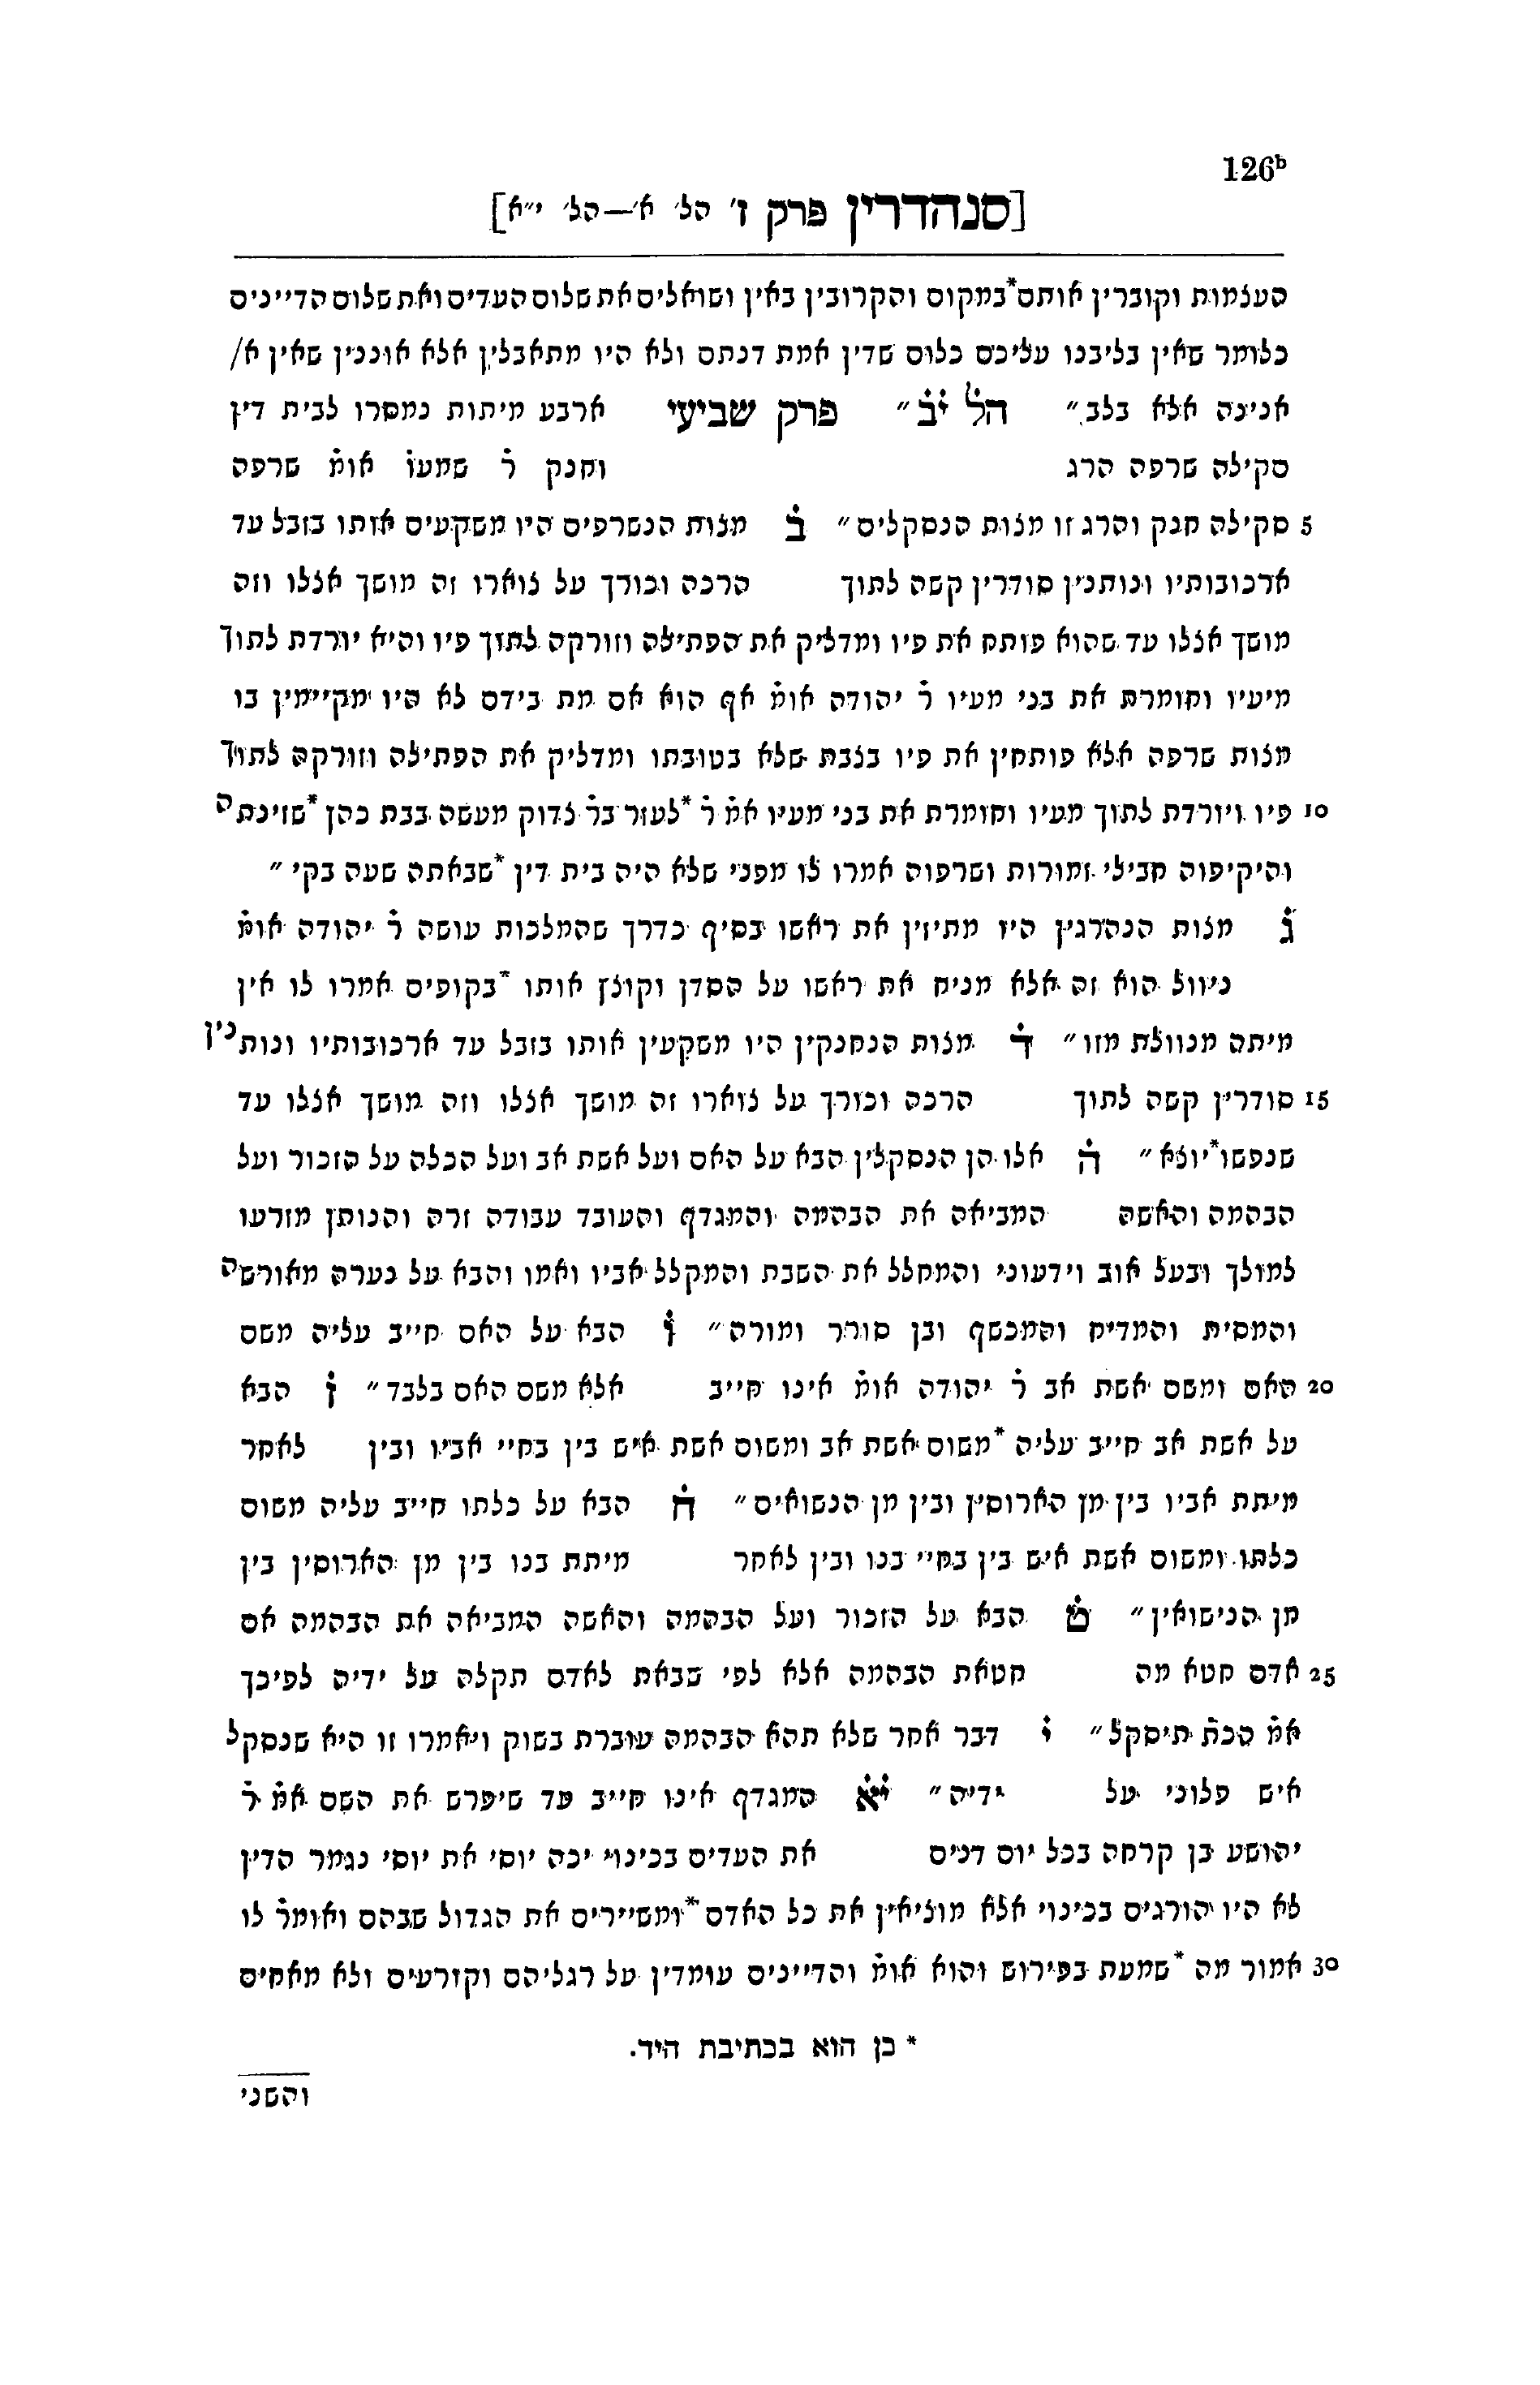 126b
[סנהדרין פרק ז׳ הל׳ א׳—הל׳ י״א]
העצמות וקוברין אותם*במקום והקרובין באין ושואלים את שלום העדים ואת שלום הדיינים
כלומר שאין בליבנו עליכם כלום שדין אמת דנתם ולא היו מתאבלין אלא אוננין שאין א/
אנינה אלא בלב״ הל̇ י̇ב̇״ פרק שביעי ארבע מיתות נמסרו לבית דין
סקילה שרפה הרג וחנק ר̇ שמעו̇ אומ̇ שרפה
5 סקילה חנק והרג זו מצות הנסקלים״ ב̇ מצות הנשרפים היו משקעים אותו בזבל עד
ארכובותיו ונותנין סודרין קשה לתוך הרכה וכורך על צוארו זה מושך אצלו וזה
מושך אצלו עד שהוא פותח את פיו ומדליק את הפתילה וזורקה לתוך פיו והיא יורדת לתוך
מיעיו וחומרת את בני מעיו ר̇ יהודה אומ̇ אף הוא אם מת בידם לא היו מקיימין בו
מצות שרפה אלא פותחין את פיו בצבת שלא בטובתו ומדליק את הפתילה וזורקה לתוך
10 פיו ויורדת לתוך מעיו וחומרת את בני מעיו אמ̇ ר̇ *לעזר בר̇ צדוק מעשה בבת כהן *שזינתה
והיקיפוה חבילי זמורות ושרפוה אמרו לו מפני שלא היה בית דין *שבאתה שעה בקי״
ג̇ מצות הנהרגין היו מתיזין את ראשו בסיף כדרך שהמלכות עושה ר̇ יהודה אומ̇
ניוול הוא זה אלא מניח את ראשו על הסדן וקוצץ אותו *בקופיס אמרו לו אין
מיתה מנוולת מזו״ ד̇ מצות הנחנקין היו משקעין אותו בזבל עד ארכובותיו ונותנין
15 סודרין קשה לתוך הרכה וכורך על צוארו זה מושך אצלו וזה מושך אצלו עד
שנפשו*יוצא״ ה̇ אלו הן הנסקלין הבא על האם ועל אשת אב ועל הכלה על הזכור ועל
הבהמה והאשה המביאה את הבהמה והמגדף והעובד עבודה זרה והנותן מזרעו
למולך ובעל אוב וידעוני והמחלל את השבת והמקלל אביו ואמו והבא על נערה מאורשה
והמסית והמדיח והמכשף ובן סורר ומורה״ ו̇ הבא על האם חייב עליה משם
20 האם ומשם אשת אב ר̇ יהודה אומ̇ אינו חייב אלא משם האם בלבד״ ז̇ הבא
על אשת אב חייב עליה *משום אשת אב ומשום אשת איש בין בחיי אביו ובין לאחר
מיתת אביו בין מן הארוסין ובין מן הנשואים״ ח̇ הבא על כלתו חייב עליה משום
כלתו ומשום אשת איש בין בחיי בנו ובין לאחר מיתת בנו בין מן הארוסין בין
מן הנישואין״ ט̇ הבא על הזכור ועל הבהמה והאשה המביאה את הבהמה אם
25 אדם חטא מה חטאת הבהמה אלא לפי שבאת לאדם תקלה על ידיה לפיכך
אמ̇ הכת̇ תיסקל״ י̇ דבר אחר שלא תהא הבהמה עוברת בשוק ויאמרו זו היא שנסקל
איש פלוני על ידיה״ י̇א̇ המגדף אינו חייב עד שיפרש את השם אמ̇ ר̇
יהושע בן קרחה בכל יום דנים את העדים בכינוי יכה יוסי את יוסי נגמר הדין
לא היו הורגים בכינוי אלא מוציאין את כל האדם *ומשיירים את הגדול שבהם ואומר̇ לו
30 אמור מה *שמעת בפירוש והוא אומ̇ והדיינים עומדין על רגליהם וקורעים ולא מאחים
* כן הוא בכתיבת היד.
והשני